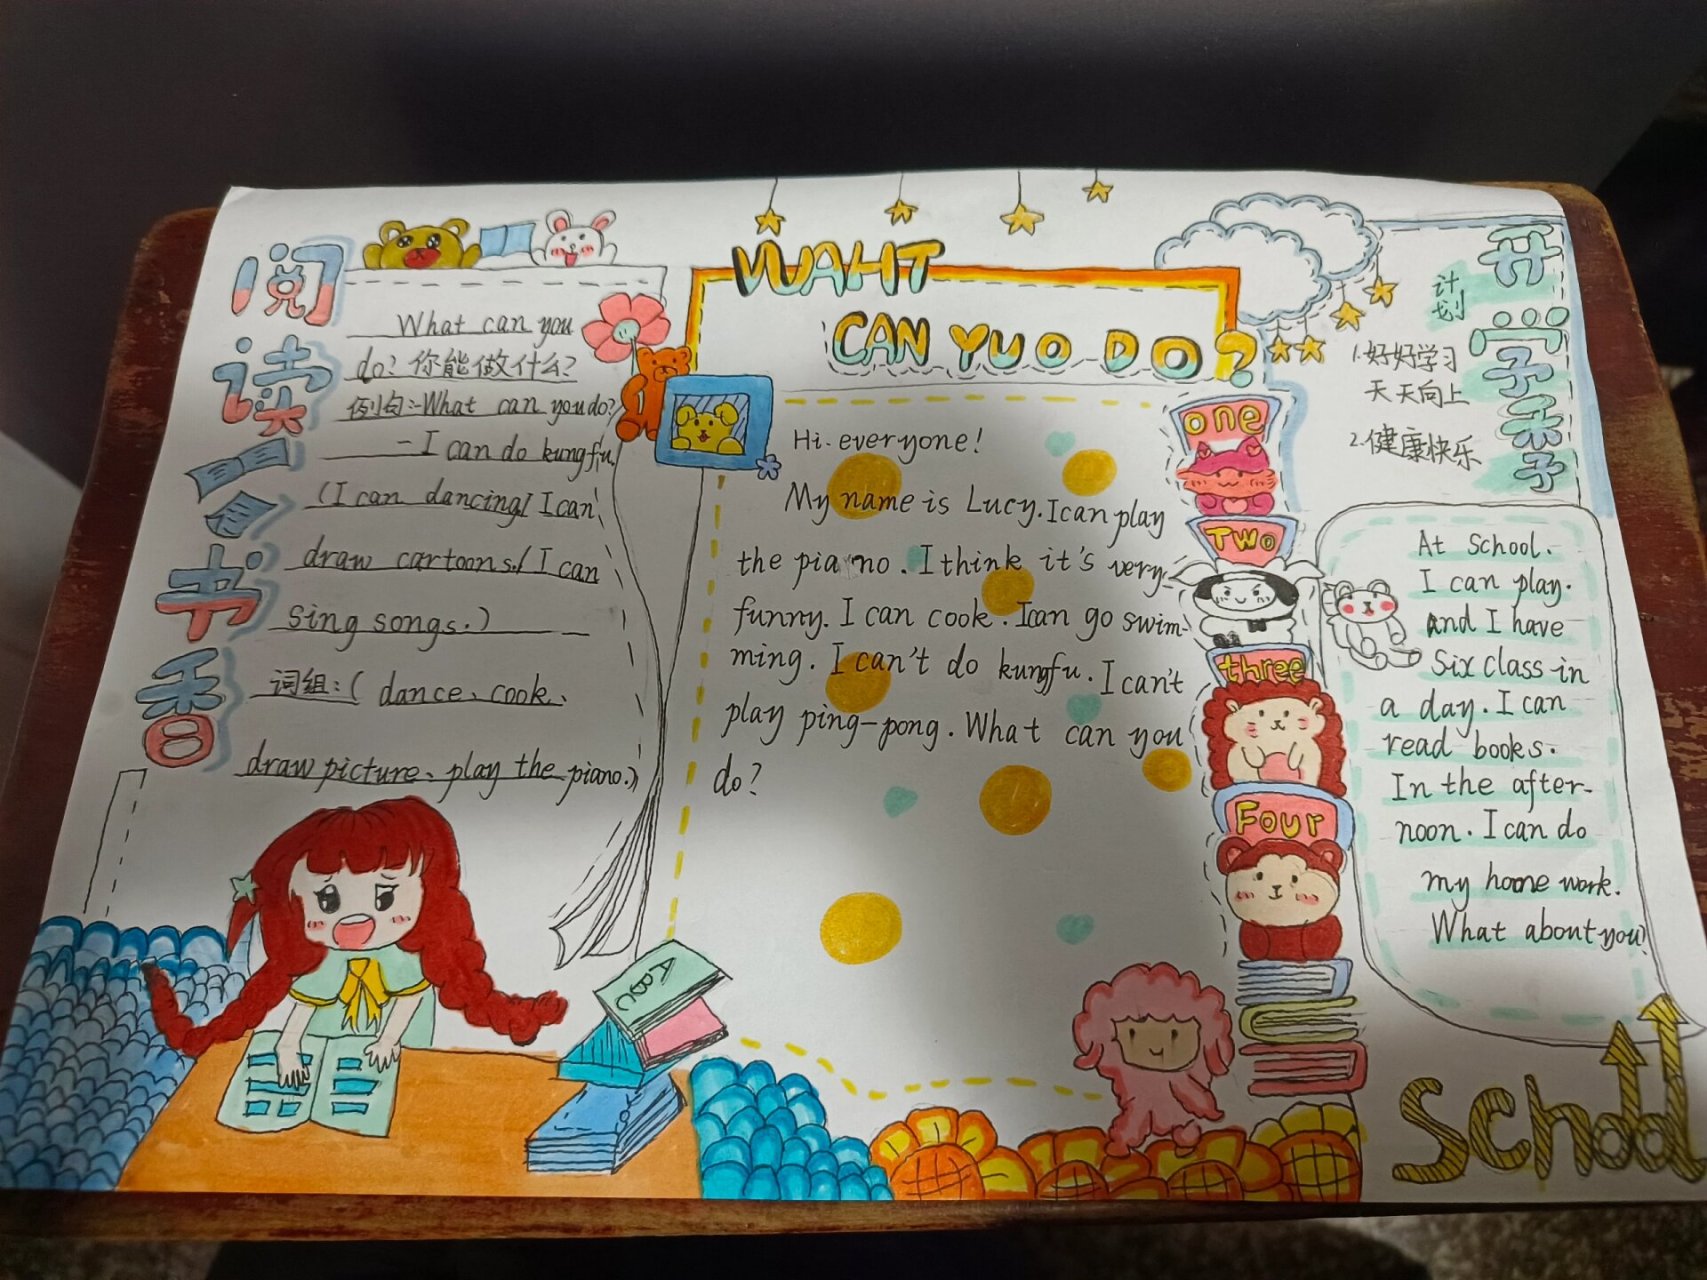 阅读书香
What can you
do? 你能做什么?
例句:-What can you do?
-I can do kungfu.
(I can dancing/ I can
draw cartoons./ I can
sing songs.)
词组:( dance、cook、
draw picture、play the piano.)
ABC
WAHT
CAN YUO DO?
Hi. everyone!
My name is Lucy. I can play
the piano. I think it's very
funny. I can cook. I can go swim-
ming. I can't do kungfu. I can't
play ping-pong. What can you
do?
one
Two
three
Four
开学季
计划
1.好好学习
天天向上
2.健康快乐
At school.
I can play.
and I have
six class in
a day. I can
read books.
In the after-
noon. I can do
my home work.
What about you?
School